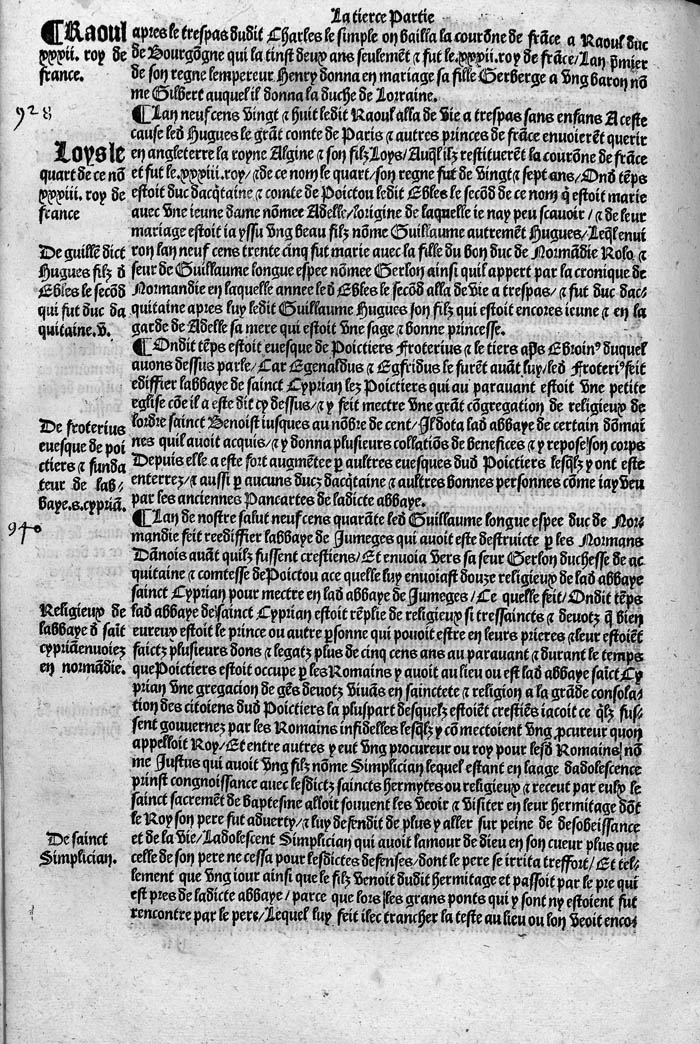 La tierce Partie
¶Raoul
xxxii. roy de
france.
apres le trespas dudit Charles le simple on bailla la courõne de frãce a Raoul duc
de Bourgõgne qui la tinst deux ans seulemẽt & fut le.xxxii.roy de frãce/Lan p̃mier
de son regne lempereur Henry donna en mariage sa fille Gerberge a vng baron nõ
me Gilbert auquel il donna la duche de Lorraine.
928
¶Lan neuf cens vingt & huit ledit Raoul alla de vie a trespas sans enfans A ceste
cause led Hugues le grãt comte de Paris & autres princes de frãce enuoierẽt querir
Loys le
quart de ce nõ
xxxiii. roy de
france
en angleterre la royne Algine & son filz Loys/Auq̃l ilz restituerẽt la courõne de frãce
et fut le.xxxiii.roy/& de ce nom le quart/son regne fut de vingt & sept ans/Ond tẽps
estoit duc dacq̃taine & comte de Poictou ledit Ebles le secõd de ce nom q̃ estoit marie
auec vne ieune dame nõmee Adelle/lorigine de laquelle ie nay peu scauoir/& de leur
mariage estoit ia yssu vng beau filz nõme Guillaume autremẽt Hugues/Leq̃l enui
De guillẽ dict
Hugues filz d̃
Ebles le secõd
qui fut duc da
quitaine.v.
ron lan neuf cens trente cinq fut marie auec la fille du bon duc de Normãdie Rolo &
seur de Guillaume longue espee nõmee Gerlon ainsi quil appert par la cronique de
Normandie en laquelle annee led Ebles le secõd alla de vie a trespas/& fut duc dac/
quitaine apres luy ledit Guillaume Hugues son filz qui estoit encores ieune & en la
garde de Adelle sa mere qui estoit vne sage & bonne princesse.
¶Ondit tẽps estoit euesque de Poictiers Froterius & le tiers ap̃s Ebroin⁹ duquel
auons dessus parle/Car Egenaldus & Egfridus le furẽt auãt luy/led Froteri⁹ feit
edifier labbaye de sainct Cyprian lez Poictiers qui au parauant estoit vne petite
eglise cõe il a este dit cy dessus/& y feit mectre vne grãt cõgregation de religieux de
De froterius
euesque de poi
ctiers & funda
teur de lab/
baye.s.cypriã.
lordre sainct Benoist iusques au nõbre de cent/Il dota lad abbaye de certain dõmai
nes quil auoit acquis/& y donna plusieurs collatiõs de benefices & y repose son corps
Depuis elle a este fort augmẽtee p aultres euesques dud Poictiers lesq̃lz y ont este
enterrez/& aussi p aucuns ducz dacq̃taine & aultres bonnes personnes cõme iay veu
par les anciennes Pancartes de ladicte abbaye.
940
¶Lan de nostre salut neuf cens quarãte led Guillaume longue espee duc de Nor/
mandie feit reedifier labbaye de Jumeges qui auoit este destruicte p les Normans
Dãnois auãt quilz fussent crestiens/Et enuoia vers sa seur Gerlon duchesse de ac
quitaine & comtesse de Poictou a ce quelle luy enuoiast douze religieux de lad abbaye
sainct Cyprian pour mectre en lad abbaye de Jumeges/Ce quelle feit/Ondit tẽps
Religieux de
labbaye d̃ saĩt
cypriã enuoiez
en normãdie.
lad abbaye de sainct Cyprian estoit rẽplie de religieux si tressaincts & deuotz q̃ bien
eureux estoit le prince ou autre psonne qui pouoit estre en leurs prieres & leur estoiẽt
faictz plusieurs dons & legatz plus de cinq cens ans au parauant & durant le temps
que Poictiers estoit occupe p les Romains y auoit au lieu ou est lad abbaye saict Cy
prian vne gregacion de gẽs deuotz viuãs en sainctete & religion a la grãde consola/
tion des citoiens dud Poictiers la pluspart desquelz estoiẽt crestiẽs iacoit ce q̃lz fus/
sent gouuernez par les Romains infidelles lesq̃lz y cõmectoient vng pcureur quon
appelloit Roy/Et entre autres y eut vng procureur ou roy pour lesd Romains nõ
me Justus qui auoit vng filz nõme Simplician lequel estant en laage dadolescence
prinst congnoissance auec lesdictz saincts hermytes ou religieux & receut par eulx le
sainct sacremẽt de baptesme alloit souuent les veoir & visiter en leur hermitage dõt
le Roy son pere fut aduerty/& luy defendit de plus y aller sur peine de desobeissance
De sainct
Simplician.
et de la vie/Ladolescent Simplician qui auoit lamour de dieu en son cueur plus que
celle de son pere ne cessa pour lesdictes defenses/dont le pere se irrita treffort/Et tel/
lement que vng iour ainsi que le filz venoit dudit hermitage et passoit par le pre qui
est pres de ladicte abbaye/parce que lors les grans ponts qui y sont ny estoient fut
rencontre par le pere/Lequel luy feit ilec trancher la teste au lieu ou lon veoit enco/